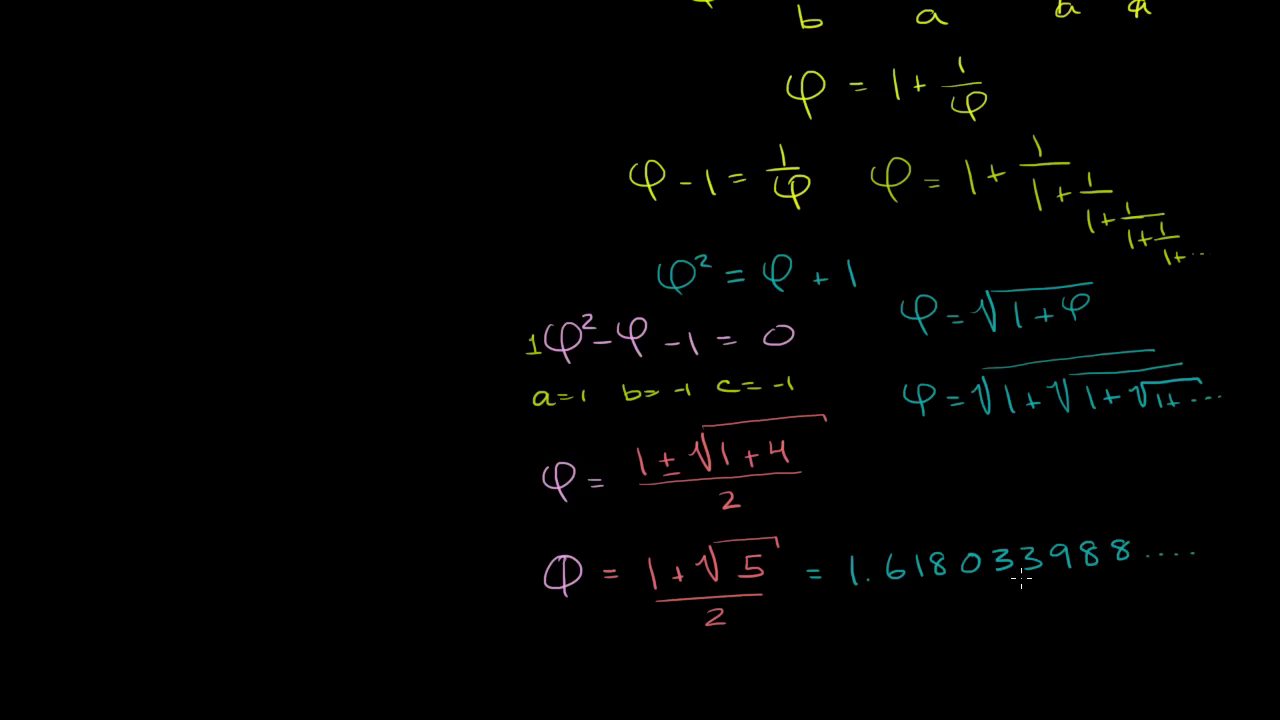 b a a a
φ = 1 + 1/φ
φ - 1 = 1/φ
φ = 1 + 1/(1 + 1/(1 + 1/(1 + 1/(1 + ...
φ² = φ + 1
φ = √(1 + φ)
1φ² - φ - 1 = 0
a=1 b=-1 c=-1
φ = √(1 + √(1 + √(1 + ...
φ = (1 ± √(1 + 4))/2
φ = (1 + √5)/2 = 1.618033988....